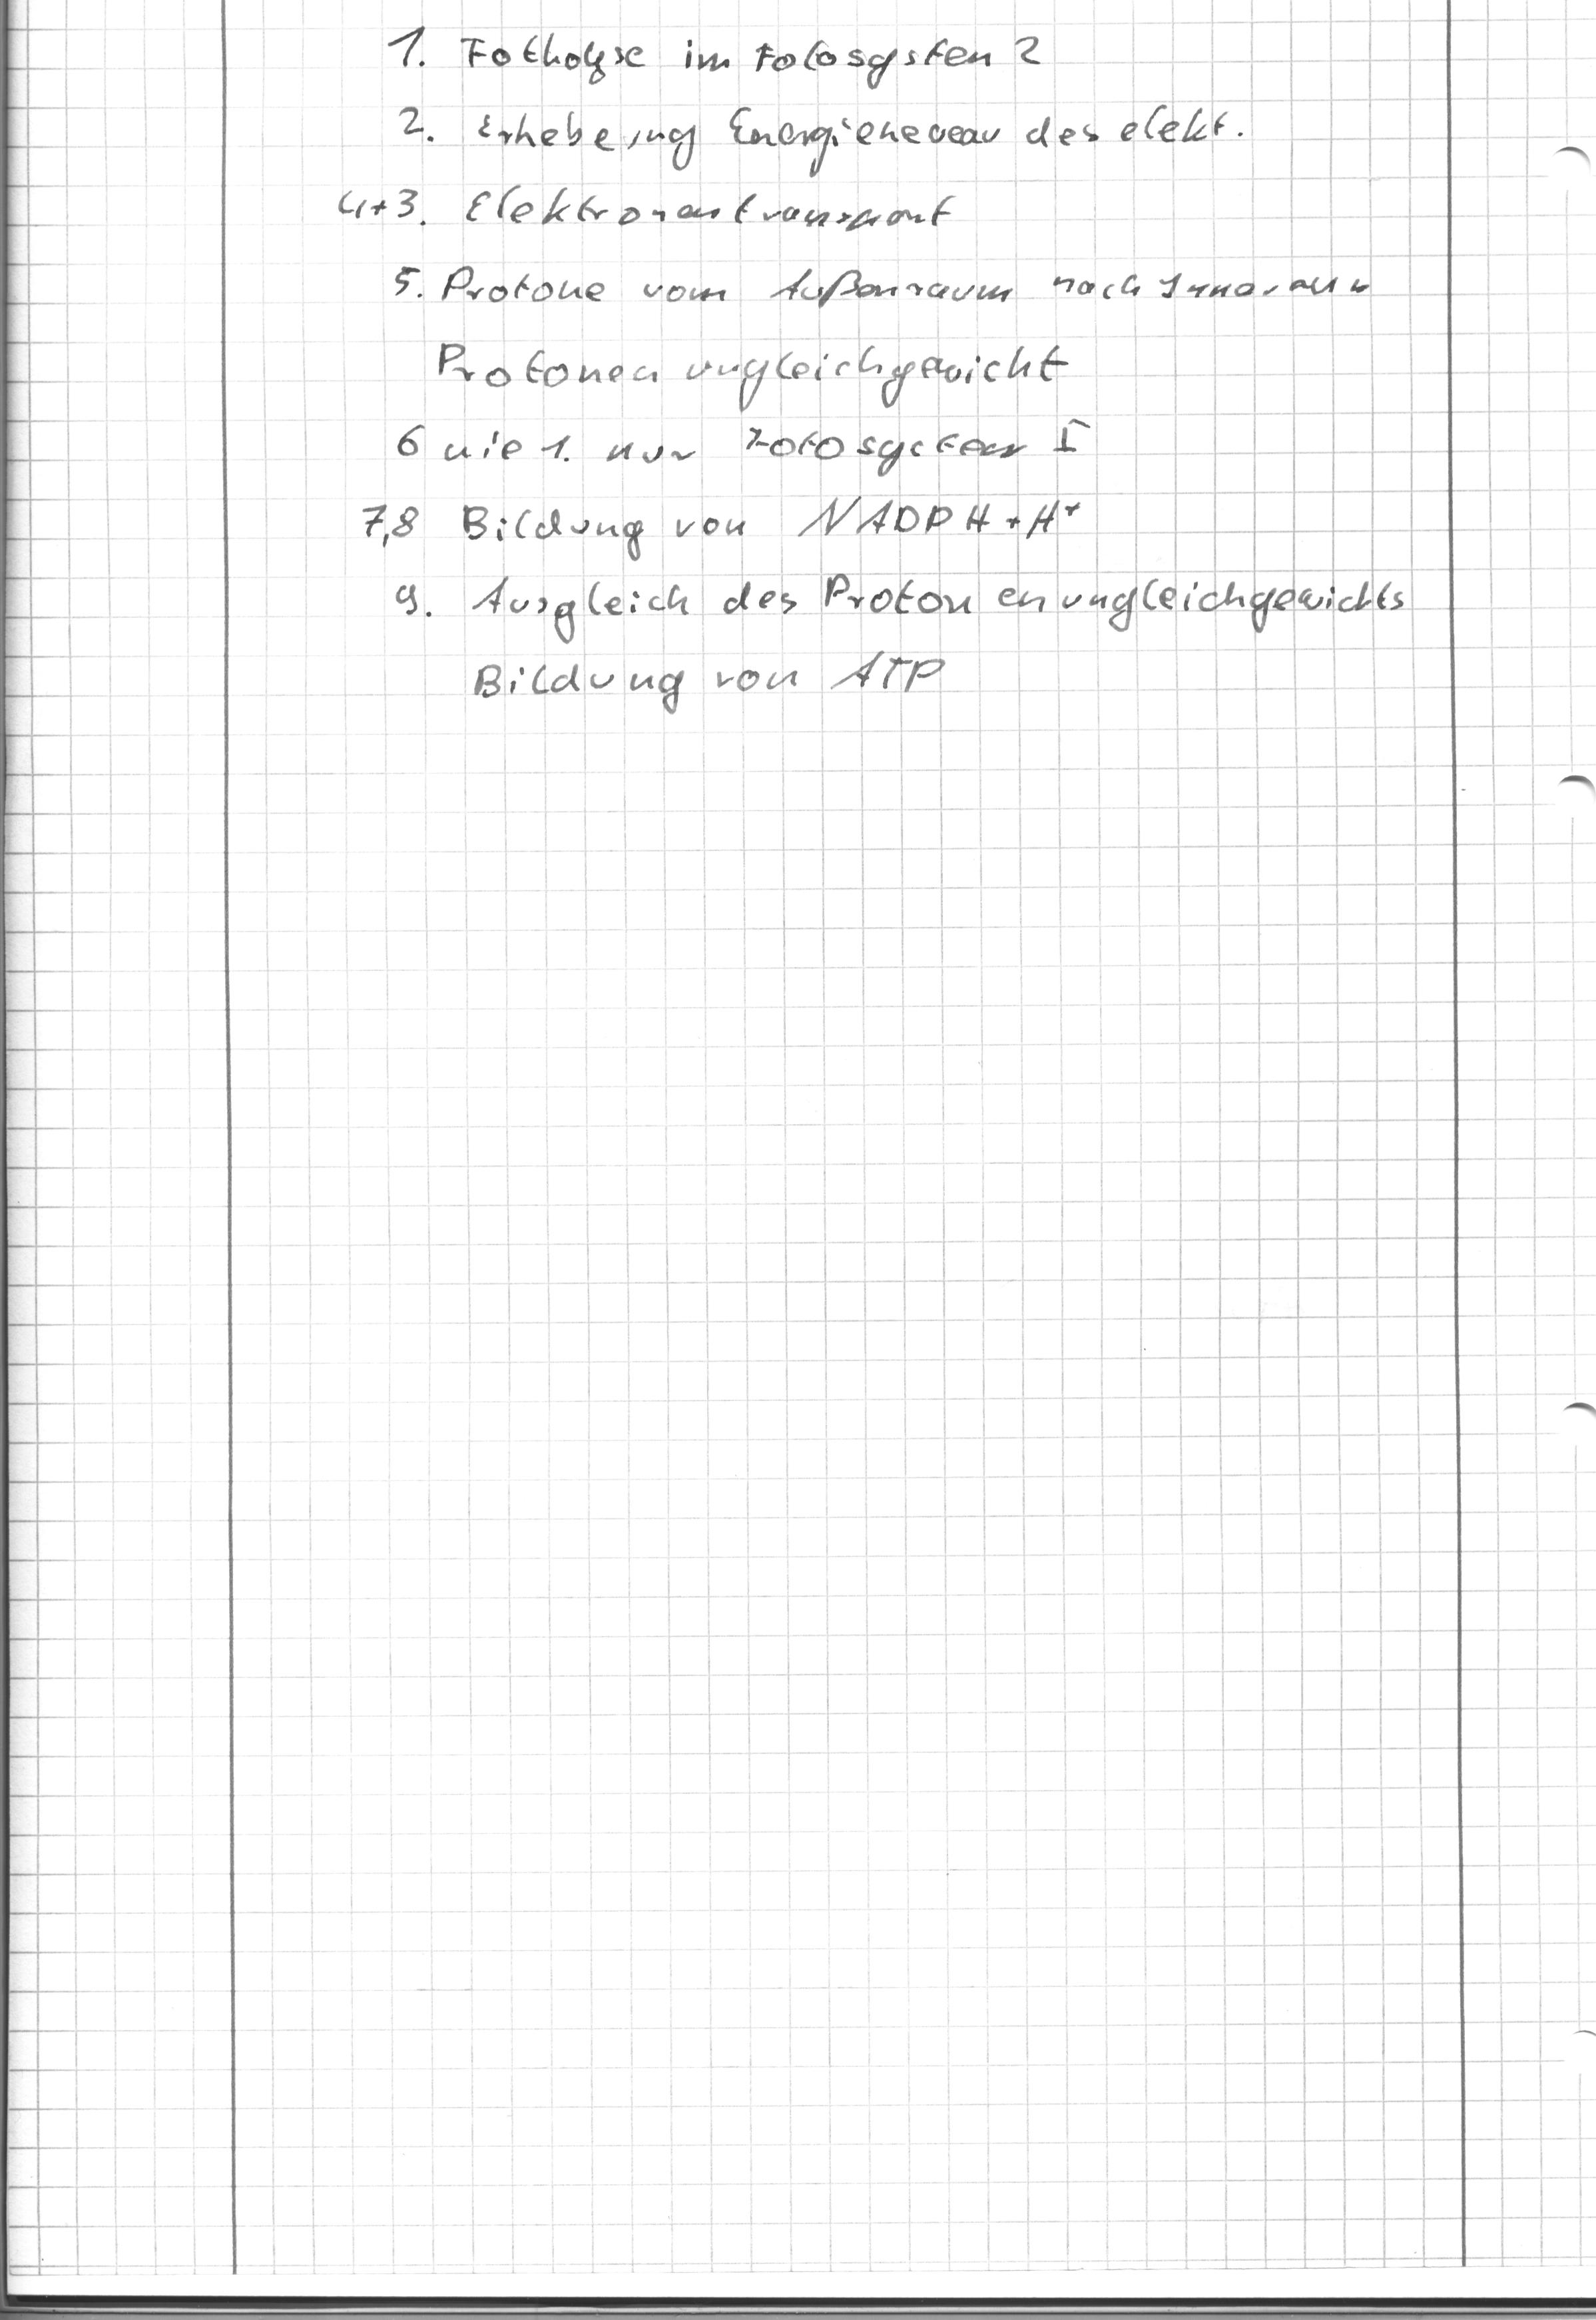 1. Fotholyse im Fotosysten 2
2. Erhebeung Energieneveau des elekt.
4+3. Elektronentransport
5. Protone vom Außenraum nach Innenraum
Protonen ungleichgewicht
6 wie 1. nur Fotosystem I
7,8 Bildung von NADPH+H⁺
9. Ausgleich des Protonenungleichgewichts
Bildung von ATP